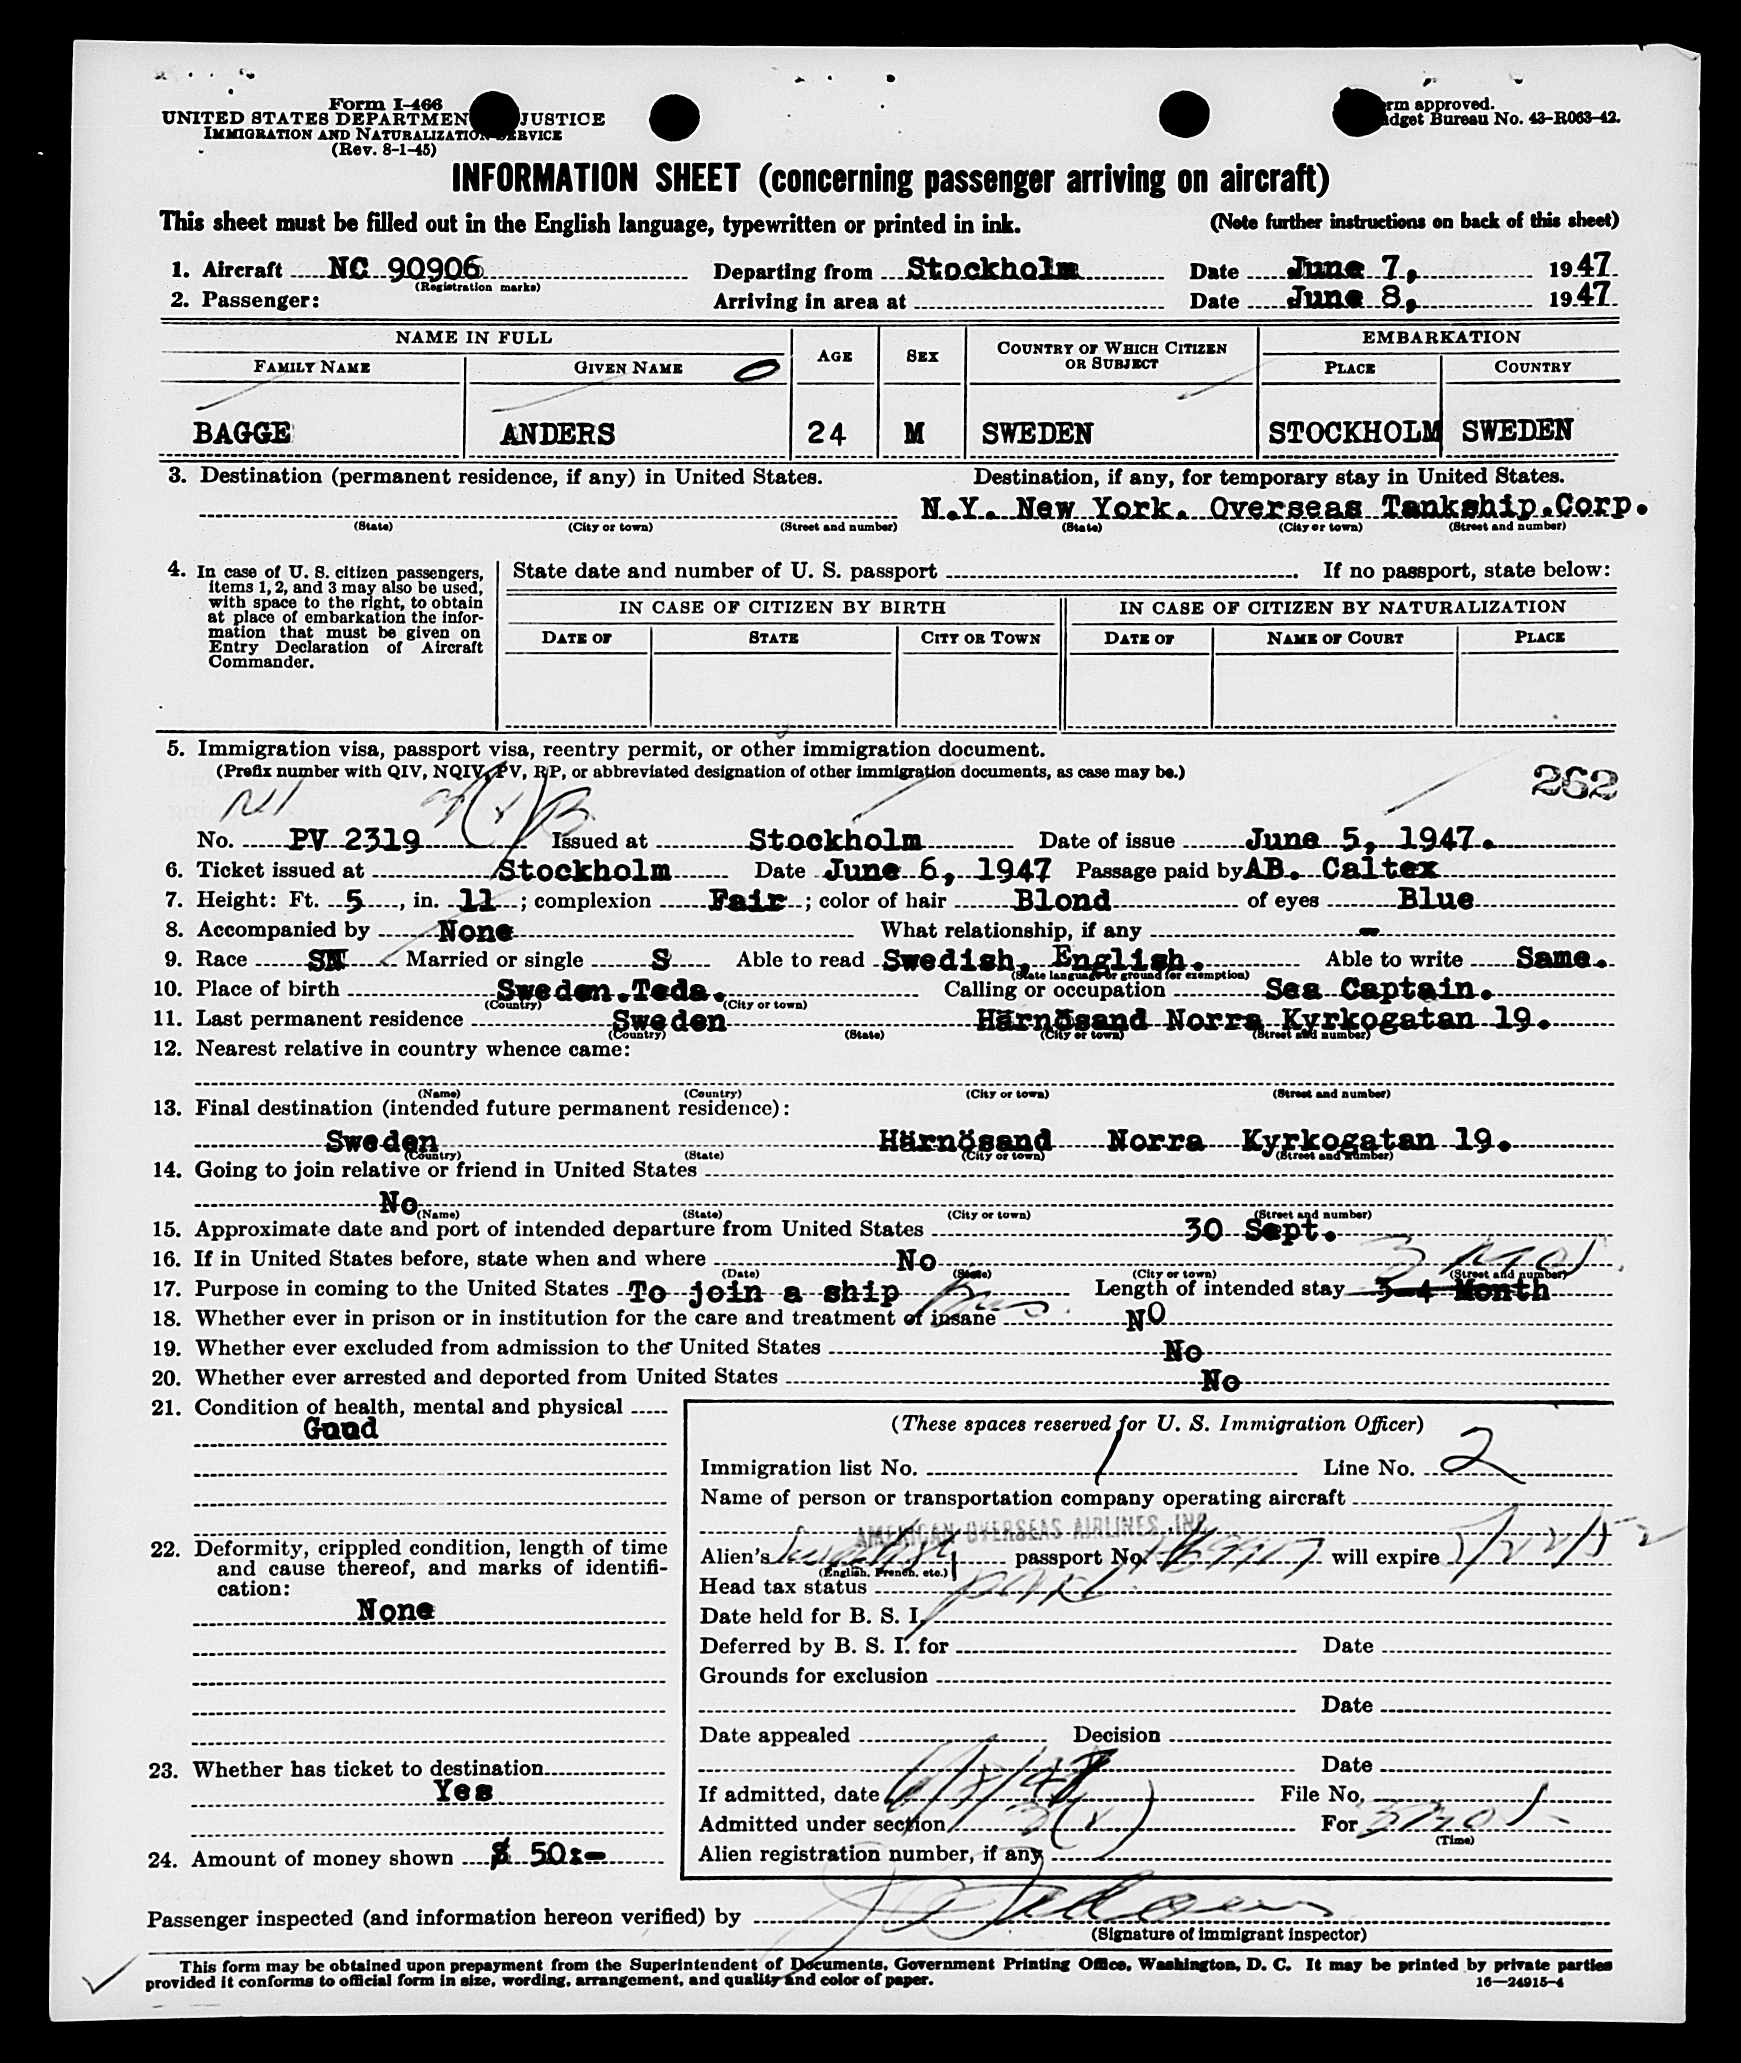 Form I-466
UNITED STATES DEPARTMEN JUSTICE
IMMIGRATION AND NATURALIZATION SERVICE
(Rev. 8-1-45)
rm approved.
dget Bureau No. 43-R063-42.
INFORMATION SHEET (concerning passenger arriving on aircraft)
This sheet must be filled out in the English language, typewritten or printed in ink. (Note further instructions on back of this sheet)
1. Aircraft NC 90906 Departing from Stockholm Date June 7, 1947
(Registration marks)
2. Passenger: Arriving in area at Date June 8, 1947
NAME IN FULL AGE SEX COUNTRY OF WHICH CITIZEN OR SUBJECT EMBARKATION
FAMILY NAME GIVEN NAME PLACE COUNTRY
BAGGE ANDERS 24 M SWEDEN STOCKHOLM SWEDEN
3. Destination (permanent residence, if any) in United States. Destination, if any, for temporary stay in United States.
N.Y. New York. Overseas Tankship.Corp.
(State) (City or town) (Street and number) (State) (City or town) (Street and number)
4. In case of U. S. citizen passengers, items 1, 2, and 3 may also be used, with space to the right, to obtain at place of embarkation the information that must be given on Entry Declaration of Aircraft Commander.
State date and number of U. S. passport . If no passport, state below:
IN CASE OF CITIZEN BY BIRTH IN CASE OF CITIZEN BY NATURALIZATION
DATE OF STATE CITY OR TOWN DATE OF NAME OF COURT PLACE
5. Immigration visa, passport visa, reentry permit, or other immigration document.
(Prefix number with QIV, NQIV, PV, RP, or abbreviated designation of other immigration documents, as case may be.)
262
3(1)B
No. PV 2319 Issued at Stockholm Date of issue June 5, 1947.
6. Ticket issued at Stockholm Date June 6, 1947 Passage paid by AB. Caltex
7. Height: Ft. 5, in. 11; complexion Fair; color of hair Blond of eyes Blue
8. Accompanied by None What relationship, if any -
9. Race SN Married or single S Able to read Swedish, English. Able to write Same.
(State language or ground for exemption)
10. Place of birth Sweden.Teda. Calling or occupation Sea Captain.
(Country) (City or town)
11. Last permanent residence Sweden Härnösand Norra Kyrkogatan 19.
(Country) (State) (City or town) (Street and number)
12. Nearest relative in country whence came:
(Name) (Country) (City or town) (Street and number)
13. Final destination (intended future permanent residence):
Sweden Härnösand Norra Kyrkogatan 19.
(Country) (State) (City or town) (Street and number)
14. Going to join relative or friend in United States
No
(Name) (State) (City or town) (Street and number)
15. Approximate date and port of intended departure from United States 30 Sept.
16. If in United States before, state when and where No
(Date) (State) (City or town) (Street and number)
3 mos.
17. Purpose in coming to the United States To join a ship Bus. Length of intended stay 3-4 Month
18. Whether ever in prison or in institution for the care and treatment of insane NO
19. Whether ever excluded from admission to the United States No
20. Whether ever arrested and deported from United States No
21. Condition of health, mental and physical
Good
22. Deformity, crippled condition, length of time and cause thereof, and marks of identification:
None
23. Whether has ticket to destination
Yes
24. Amount of money shown $ 50:-
(These spaces reserved for U. S. Immigration Officer)
Immigration list No. 1 Line No. 2
Name of person or transportation company operating aircraft
AMERICAN OVERSEAS AIRLINES, INC
Alien's Swedish passport No. will expire 5/22/52
(English, French, etc.)
Head tax status
Date held for B. S. I.
Deferred by B. S. I. for Date
Grounds for exclusion
Date
Date appealed Decision
Date
If admitted, date 6/8/47 File No.
Admitted under section 3(1) For 3 mos
(Time)
Alien registration number, if any
Passenger inspected (and information hereon verified) by
(Signature of immigrant inspector)
This form may be obtained upon prepayment from the Superintendent of Documents, Government Printing Office, Washington, D. C. It may be printed by private parties
provided it conforms to official form in size, wording, arrangement, and quality and color of paper. 16—24915-4